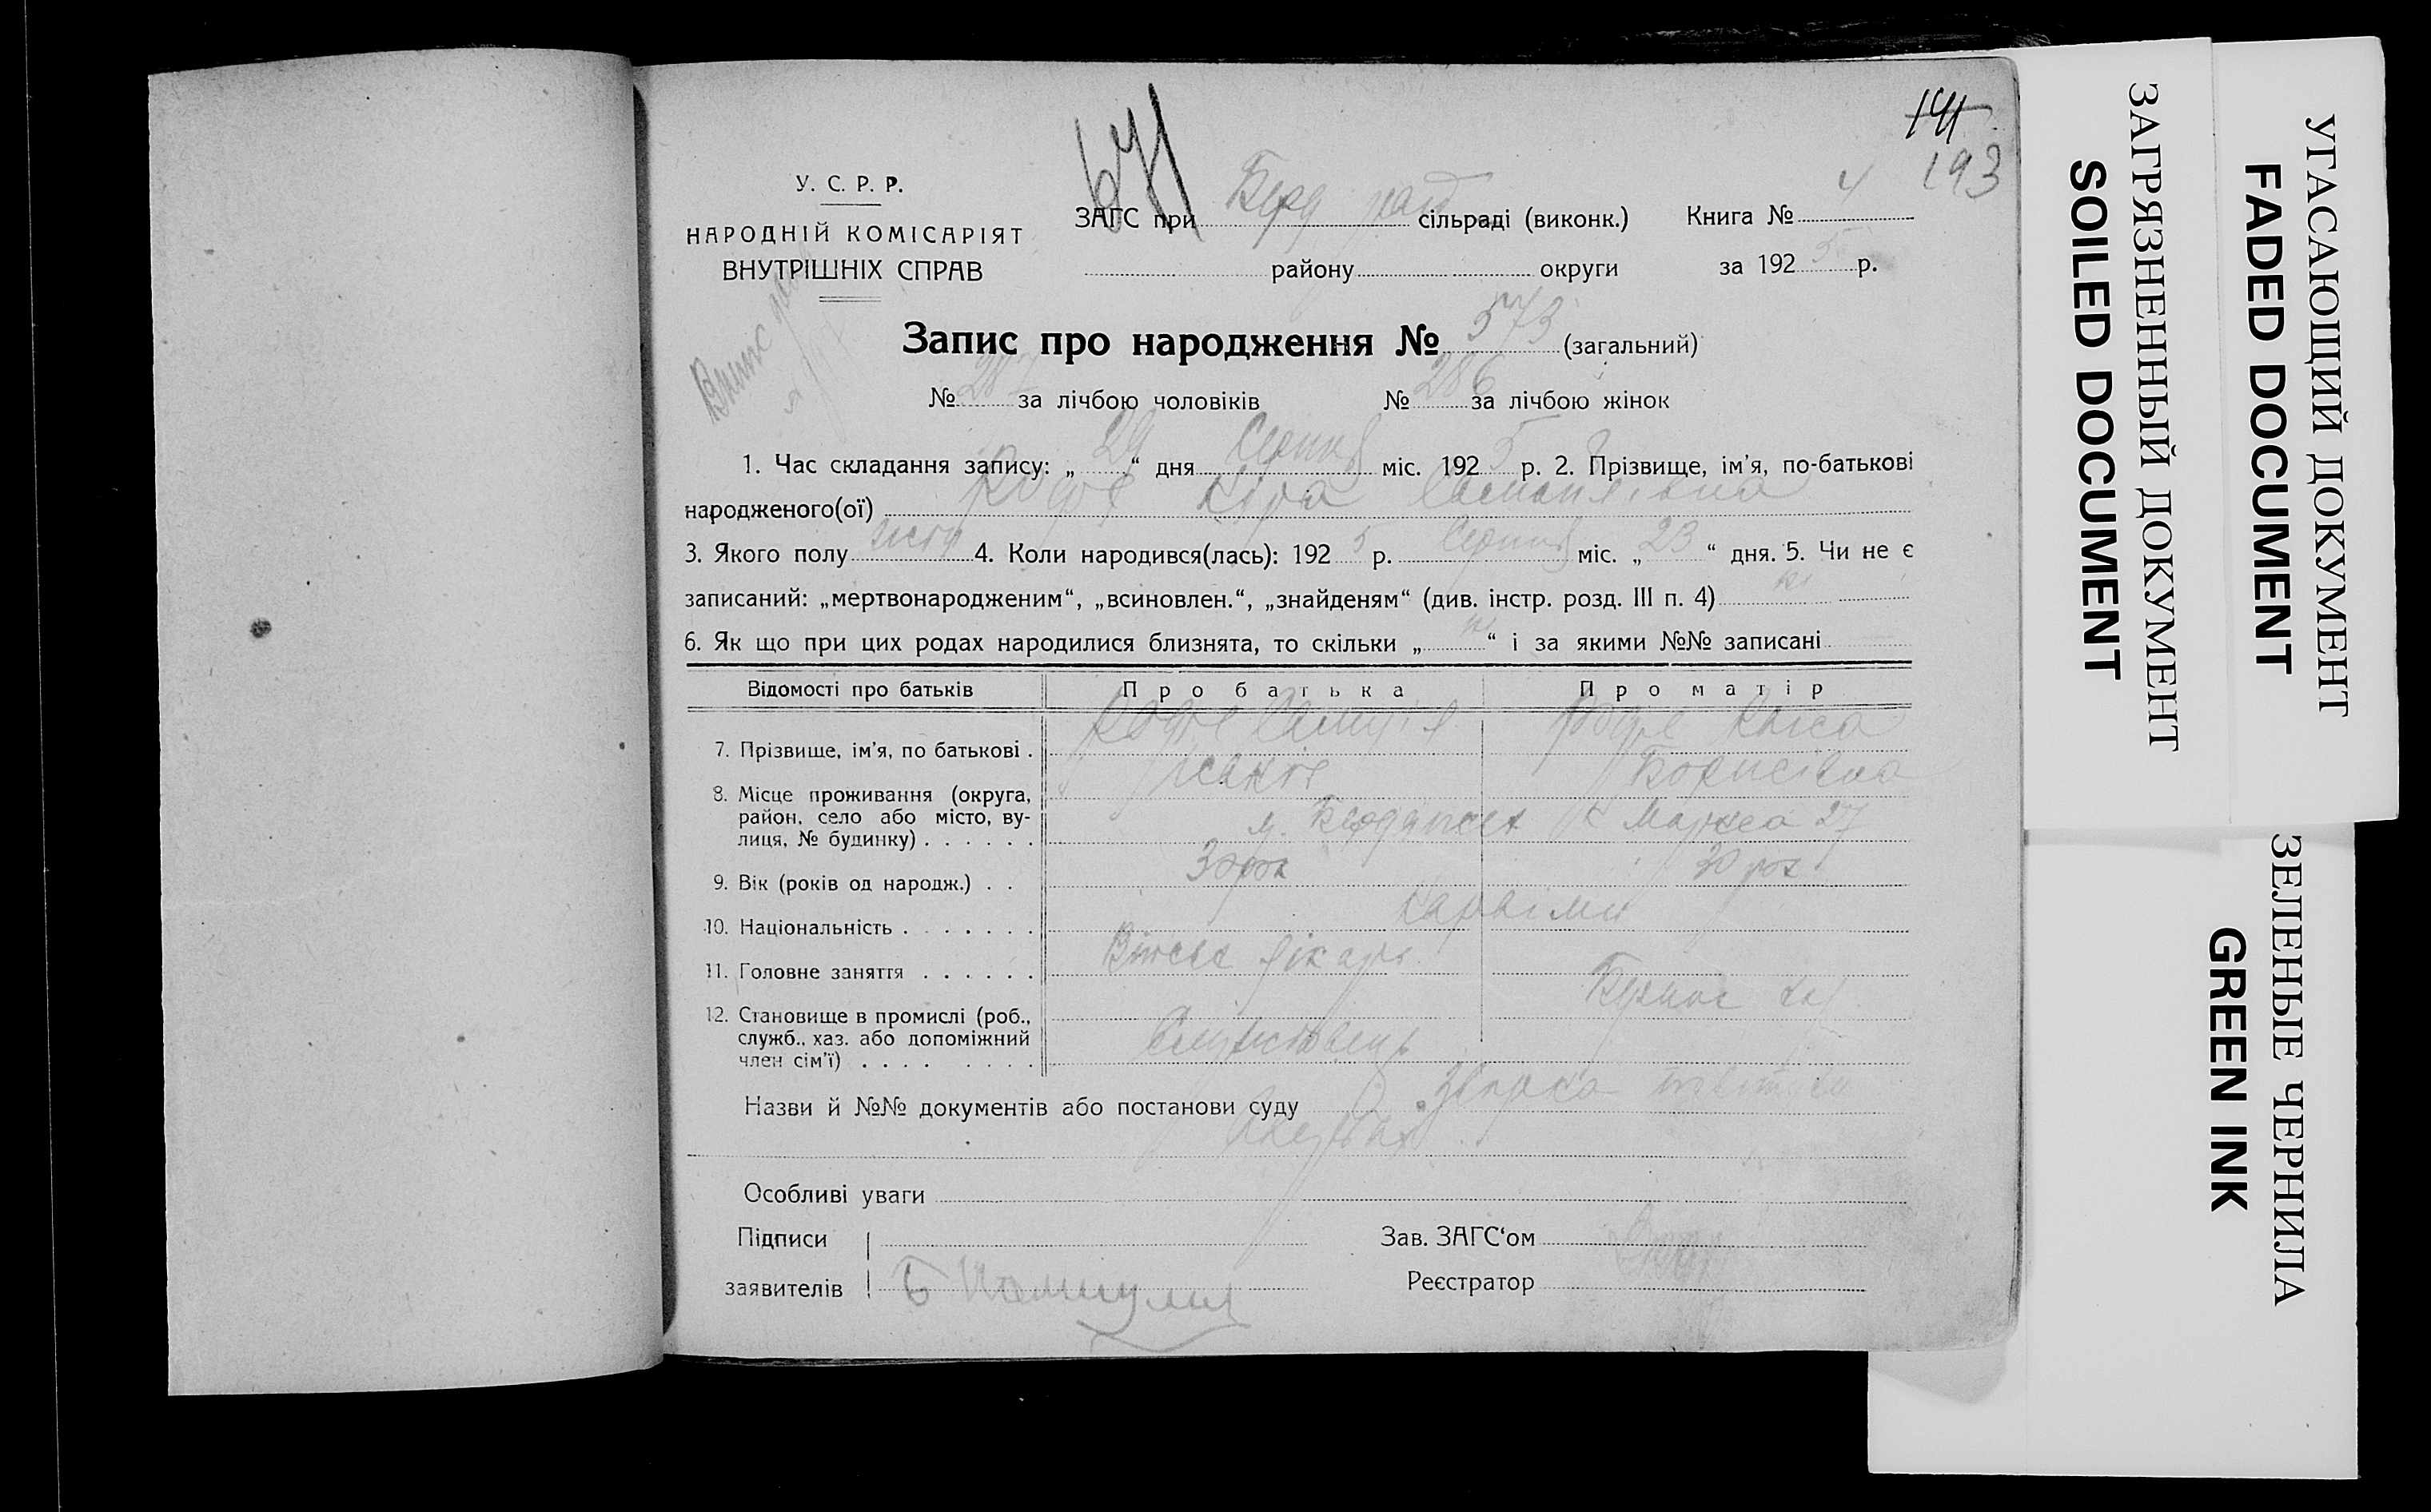 141
193
У. С. Р. Р.
НАРОДНІЙ КОМІСАРІЯТ
ВНУТРІШНІХ СПРАВ
ЗАГС при Берд сільраді (виконк.) Книга № 4
району округи за 192 5 р.
Запис про народження № 573 (загальний)
№ за лічбою чоловіків № 286 за лічбою жінок
1. Час складання запису: „ 29 “ дня Серпня міс. 192 5 р. 2. Прізвище, ім’я, по-батькові
народженого(ої) Рофе Кіра Самойлівна
3. Якого полу 4. Коли народився(лась): 192 5 р. Серпня міс. „ 23 “ дня. 5. Чи не є
записаний: „мертвонародженим“, „всиновлен.“, „знайденям“ (див. інстр. розд. III п. 4) ні
6. Як що при цих родах народилися близнята, то скільки „ ні “ і за якими №№ записані
Відомості про батьків Про батька Про матір
7. Прізвище, ім’я, по батькові . Рофе Рофе
Борисівна
8. Місце проживання (округа,
район, село або місто, ву-
лиця, № будинку) . . . . . . м. Бердянськ К Маркса 27
9. Вік (років од народж.) . . 30 рок 30 рок
10. Національність . . . . . . . Караїми
11. Головне заняття . . . . . . лікарь
12. Становище в промислі (роб.,
служб., хаз. або допоміжний
член сім’ї) . . . . . . . . Службовець
Назви й №№ документів або постанови суду
Особливі уваги
Підписи
заявителів
Зав. ЗАГС‘ом
Реєстратор
УГАСАЮЩИЙ ДОКУМЕНТ
FADED DOCUMENT
ЗАГРЯЗНЕННЫЙ ДОКУМЕНТ
SOILED DOCUMENT
ЗЕЛЕНЫЕ ЧЕРНИЛА
GREEN INK